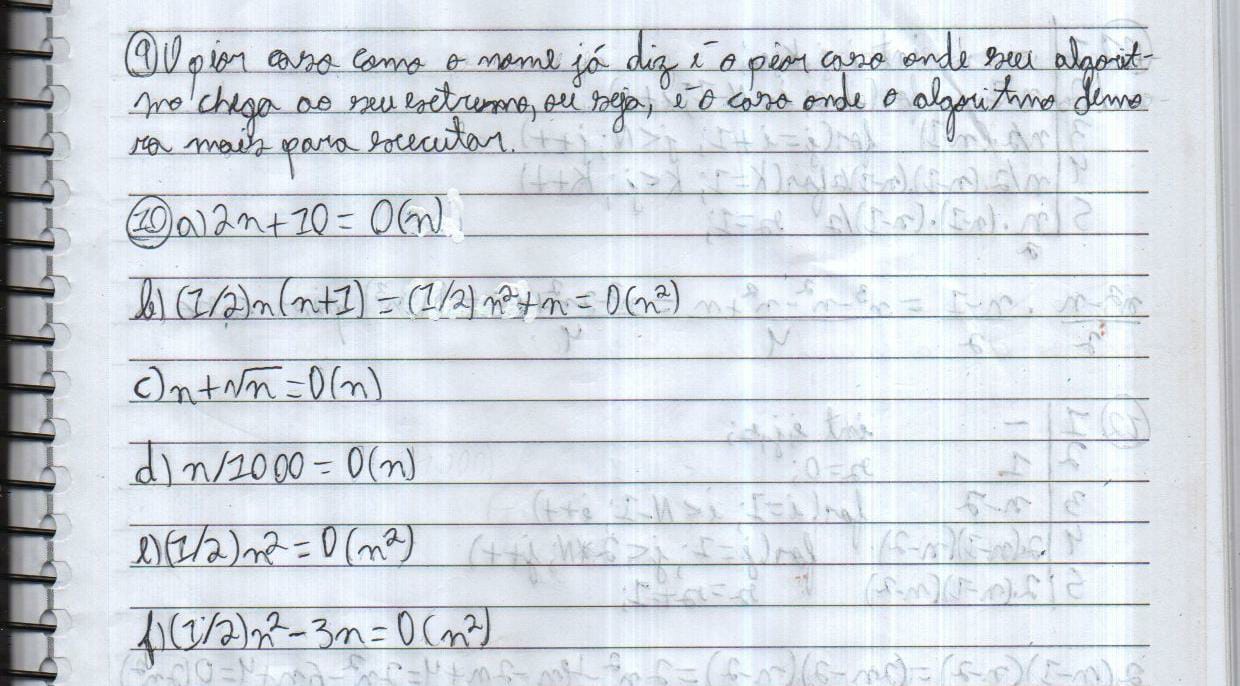 9) O pior caso como o nome já diz é o pior caso onde seu algorit-
mo chega ao seu extremo, ou seja, é o caso onde o algoritmo demo
ra mais para executar.
10) a) 2n+10 = O(n)
b) (1/2)n(n+1) = (1/2)n²+n = O(n²)
c) n+√n = O(n)
d) n/1000 = O(n)
e) (1/2)n² = O(n²)
f) (1/2)n² - 3n = O(n²)